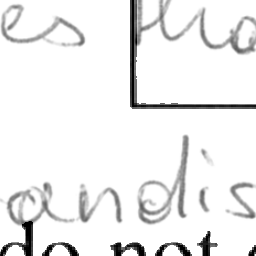 es tha
andis
do not